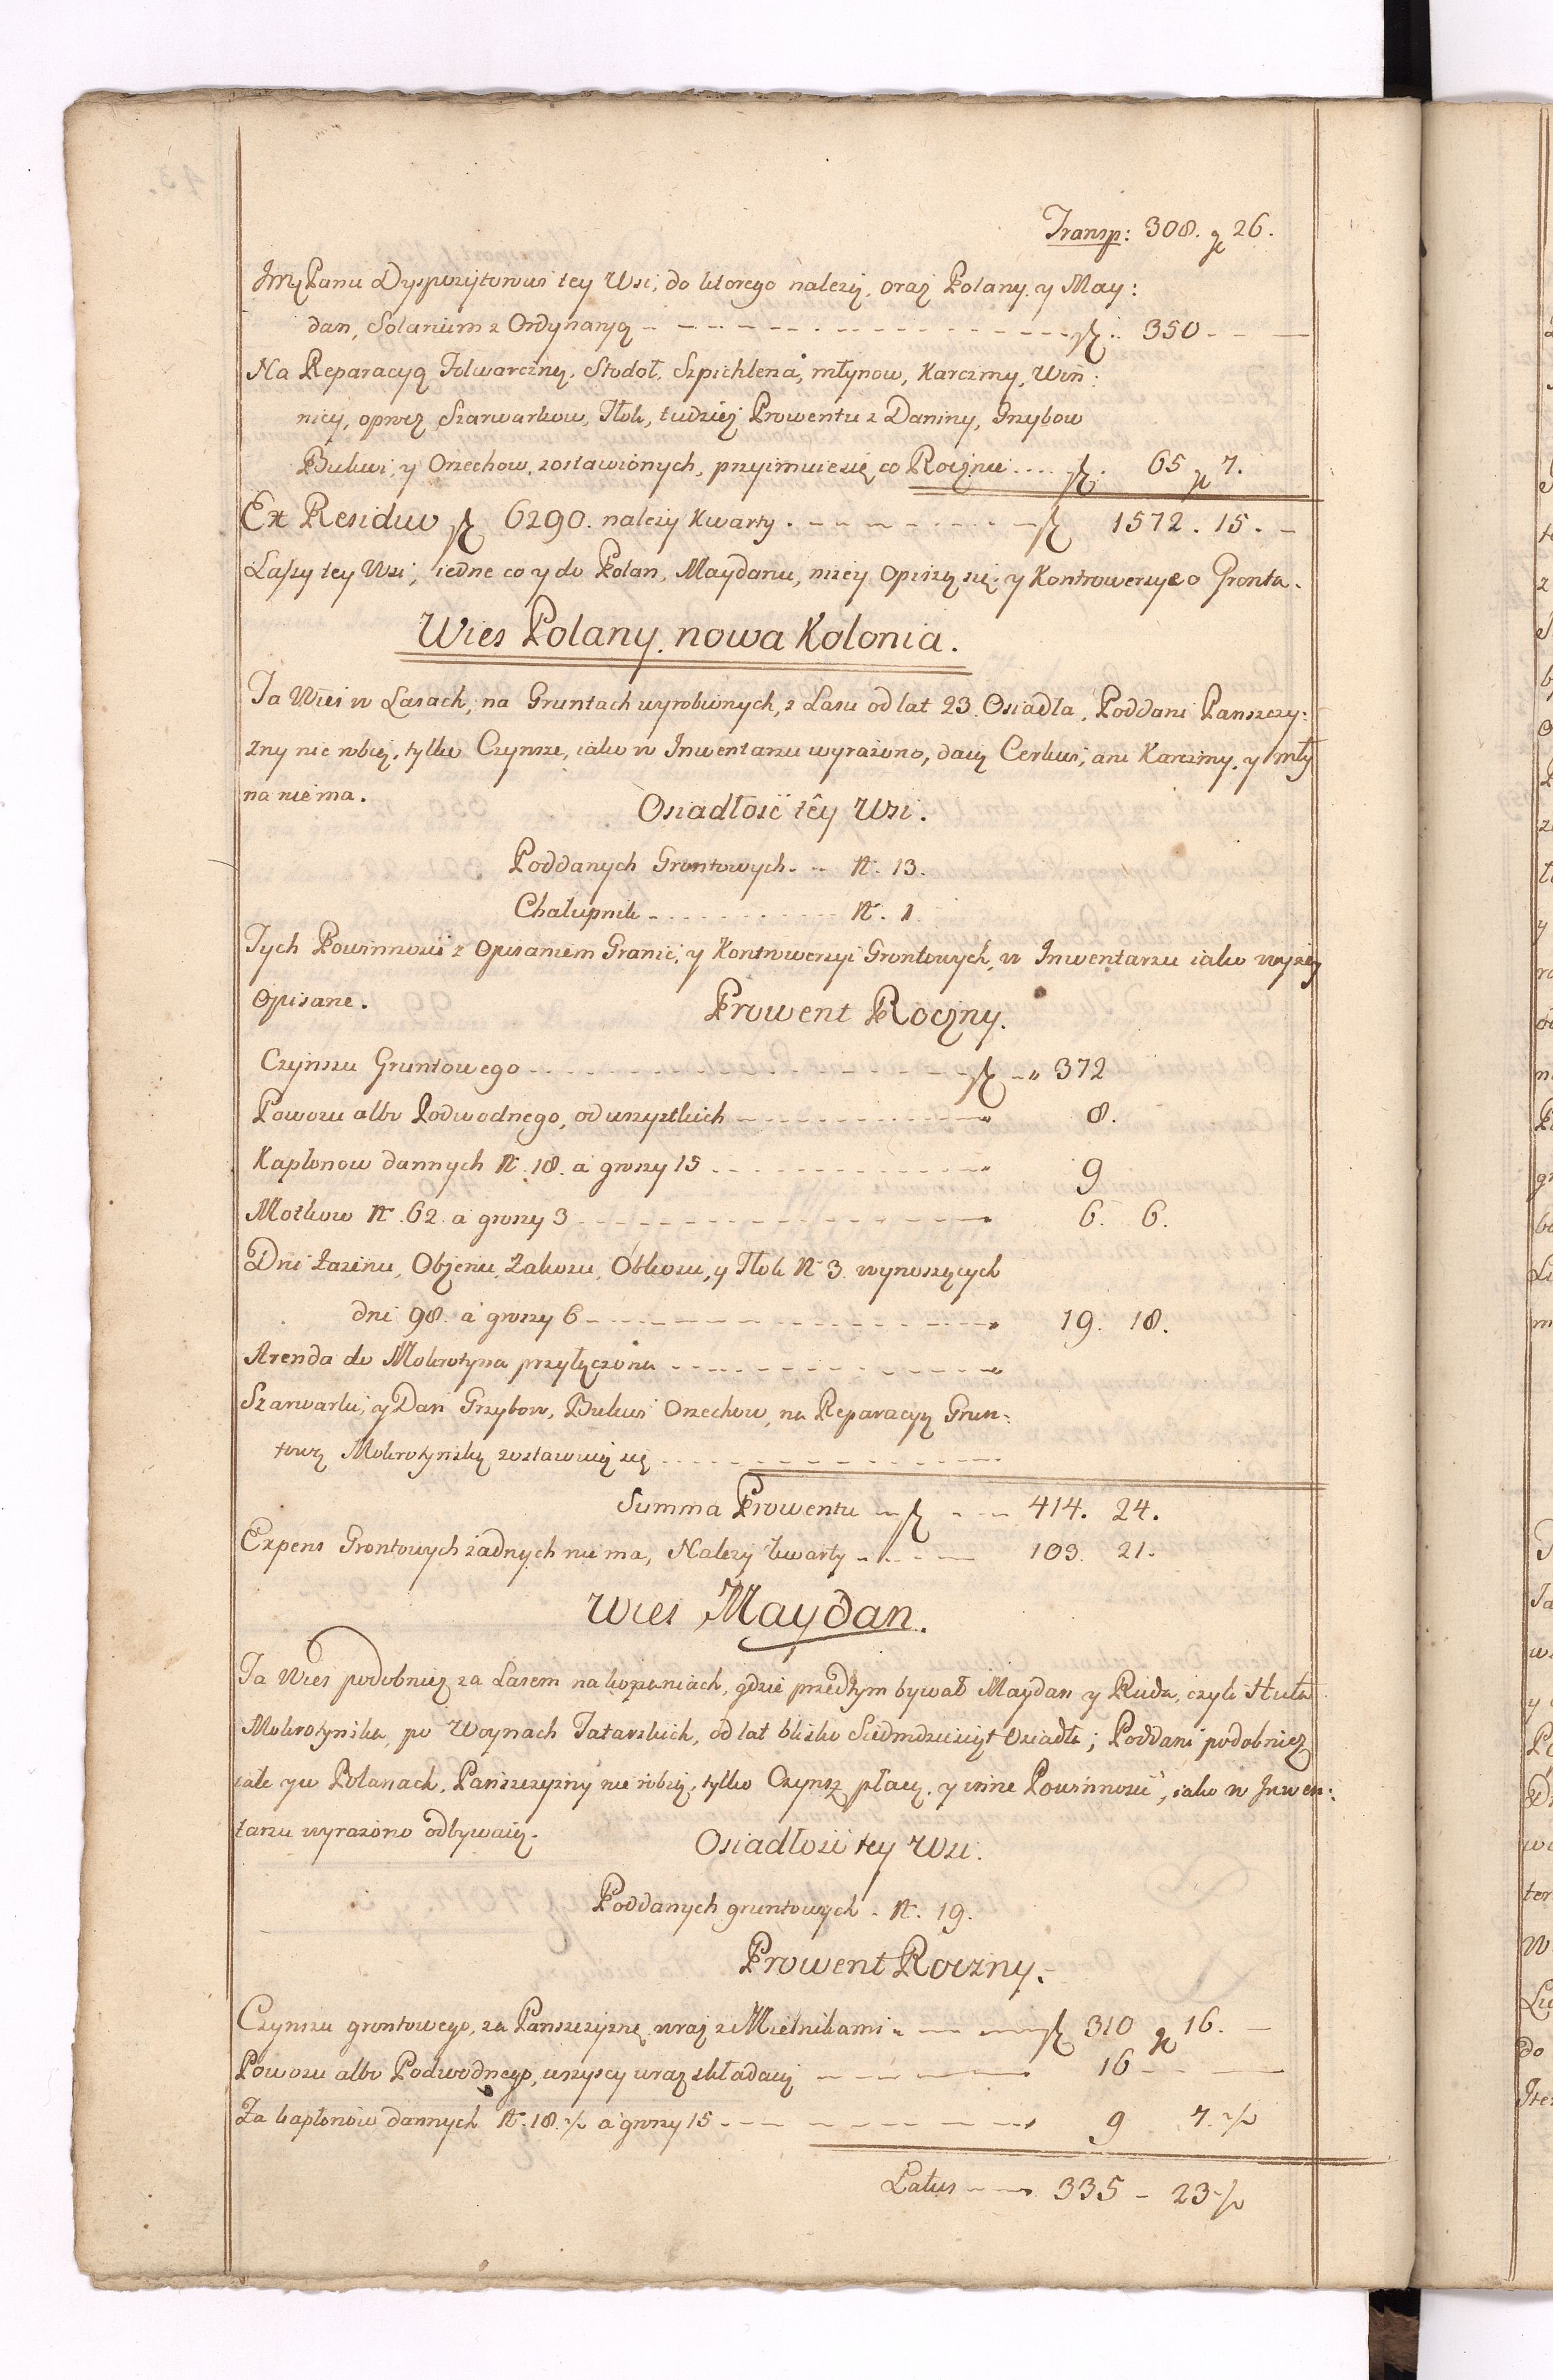 Transp: 308. gr 26.
JmPanu Dyspozytorowi tey Wsi, do ktorego należy, oraz Polany y May:
dan, Solarium z Ordynaryą - - - fl. 350 - -
Na Reparacyą Folwarczną, Stodoł, Szpichlerza, młynow, Karczmy, Win:
nicy, oprocz Szarwarkow, Tłok, tudzież Prowentu z Daniny, Grzybow
Bukwi, y Orzechow, zostawionych, przyimuie się co Roczniē .... fl. 65 gr 7.
Ex Residuo fl 6290. należy Kwarty . - - - fl 1572. 15. -
Lassy tey Wsi, iedne co y do Polan, Maydanu, niżey Opiszą się y Kontrowersye o Gronta.
Wies Polany nowa Kolonia.
Ta Wieś w Lasach, na Gruntach wyrobionych, z Lasu od lat 23. Osiadła, Poddani Panszczy:
zny nie robią, tylko Czynsze, iako w Inwentarzu wyrażono, daią Cerkwi, ani Karczmy, y mły
na niema.
Osiadłość téy Wsi.
Poddanych Grontowych. - N. 13.
Chałupnik - - - N. 1.
Tych Powinności z Opisaniem Granic, y Kontrowersyi Grontowych, w Inwentarzu iako wyżey
Opisane.
Prowent Roczny.
Czynszu Gruntowego - - - fl - " 372
Powozu albo Podwodnego, od wszystkich - - - " 8.
Kapłonow dannych N. 18. a groszy 15 - - - " 9
Motkow N. 62. a groszy 3 - - - " 6. 6.
Dni Zażinu, Obżenu, Zakosu, Obkosu, y Tłok N 3. wynoszących
dni 98. a groszy 6 - - - " 19. 18.
Arenda do Mokrotyna przyłączona - - - "
Szarwarki, y Dań Grzybow, Bukwi Orzechow, na Reparacyą Grun:
tową Mokrotyńską zostawuią się - - -
Summa Prowentu - fl - - 414. 24.
Expens Grontowych żadnych nie ma, Należy kwarty - - - 103. 21.
Wies Maydan.
Ta Wies podobnież za Lasem na kopaniach, gdzie przedtym bywał Maydan y Ruda, czyli Huta
Mokrotynska, po Woynach Tatarskich, od lat blisko Siedmdziesiąt Osiadła; Poddani podobnież
iak y w Polanach, Panszczyzny nie robią, tylko Czynsz płacą, y inne Powinności, iako w Inwen:
tarzu wyrażono odbywaią.
Osiadłość tey Wsi.
Poddanych gruntowych - N. 19.
Prowent Roczny.
Czynszu grontowego, za Panszczyznę, wraz z Mielnikami - - - fl 310 gr 16. -
Powozu albo Podwodnego, wszyscy wraz składaią - - - 16 - -
Za kapłonow dannych N. 18. ½ a groszy 15 - - - " 9 7.½
Latus - - 335 - 23½